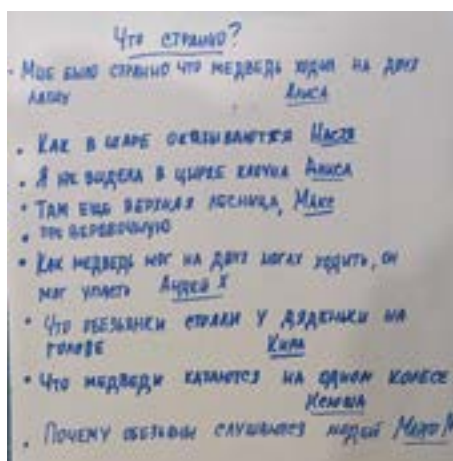 Что странно?
• Мне было странно что медведь ходил на двух
лапах Алиса
• Как в шаре оказываются Настя
• Я не видела в цирке клоуна Алиса
• Там ещё верхняя лесница, Макс
• про веровочную
• Как медведь мог на двух ногах ходить, он
мог упасть Андрей Х
• Что обезьянки стояли у дяденьки на
голове Кира
• Что медведи катаются на одном колесе
Ксюша
• Почему обезьяны слушаются людей Макс М